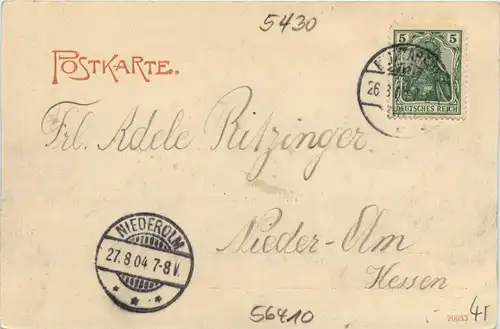 5430
POSTKARTE.
5 5
DEUTSCHES REICH
26.8
Frl. Adele Ritzinger
NIEDEROLM
27.8 04 7-8 V.
Nieder-Olm
Hessen
56410
41